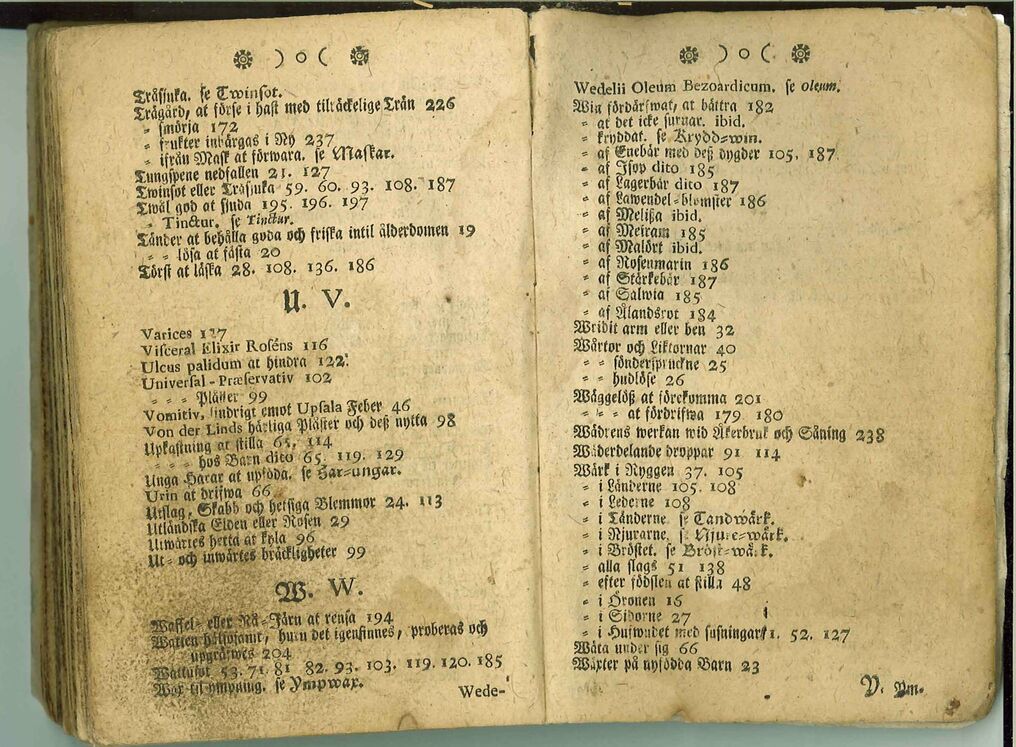 ) o (
Tråsjuka. se Twinsot.
Trägård, at förse i hast med tilräckelige Trän 226
- smörja 172
- frukter inbärgas i Ny 237
- ifrån Mask at förwara. se Maskar.
Tungspene nedfallen 21. 127
Twinsot eller Tråsjuka 59. 60. 93. 108. 187
Twål god at siuda 195. 196. 197
- Tinctur. se Tinctur.
Tänder at behålla goda och friska intil ålderdomen 19
- - lösa at fästa 20
Törst at läska 28. 108. 136. 186
U. V.
Varices 117
Visceral Elixir Roséns 116
Ulcus palidum at hindra 122
Universal-Præservativ 102
- - - Plåster 99
Vomitiv, lindrigt emot Upsala Feber 46
Von der Linds härliga Plåster och deß nytta 98
Upkastning at stilla 65. 114
- - - hos Barn dito 65. 119. 129
Unga Harar at upföda. se Har-ungar.
Urin at drifwa 66
Utslag, Skabb och hetsiga Blemmor 24. 113
Utländska Elden eller Rosen 29
Utwärtes hetta at kyla 96
Ut- och inwärtes bräckligheter 99
W. W.
Waffel- eller Rå-Järn at rensa 194
Watten hälsosamt, huru det igenfinnes, proberas och
upgräfwes 204
Wattusot 53. 71. 81 82. 93. 103. 119. 120. 185
Wax til ympning. se Ympwax.
Wede-
) o (
Wedelii Oleum Bezoardicum. se oleum.
Win fördärfwat, at bättra 182
- at det icke surnar. ibid.
- kryddat. se Krydd-win.
- af Enebär med deß dygder 105. 187
- af Isop dito 185
- af Lagerbär dito 187
- af Lawendel-blomster 186
- af Melißa ibid.
- af Meiram 185
- af Malört ibid.
- af Rosenmarin 186
- af Stärkebär 187
- af Salwia 185
- af Ålandsrot 184
Wridit arm eller ben 32
Wårtor och Liktornar 40
- - sönderspruckne 25
- - hudlöse 26
Wäggelöß at förekomma 201
- - - at fördrifwa 179. 180
Wädrens werkan wid Åkerbruk och Såning 238
Wäderdelande droppar 91. 114
Wärk i Ryggen 37. 105
- i Länderne 105. 108
- i Lederne 108
- i Tänderne se Tandwärk.
- i Njurarne. se Njure-wärk.
- i Bröstet. se Bröst-wärk.
- alla slags 51 138
- efter födslen at stilla 48
- i Öronen 16
- i Sidorne 27
- i Hufwudet med susningar 1. 52. 127
Wäta under sig 66
Wäxter på nyfödda Barn 23
Y. Ym-